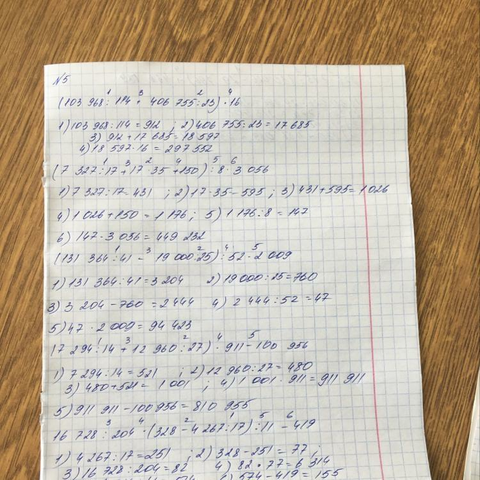 №5
(103 968 : 114 + 406 755 : 23) · 16
1) 103 968 : 114 = 912 ; 2) 406 755 : 23 = 17 685
3) 912 + 17 685 = 18 597
4) 18 597 · 16 = 297 552
(7 327 : 17 + 17 · 35 + 150) : 8 · 3 056
1) 7 327 : 17 = 431 ; 2) 17 · 35 = 595 ; 3) 431 + 595 = 1 026
4) 1 026 + 150 = 1 176 ; 5) 1 176 : 8 = 147
6) 147 · 3 056 = 449 232
(131 364 : 41 - 19 000 : 25) : 52 · 2 009
1) 131 364 : 41 = 3 204 2) 19 000 : 25 = 760
3) 3 204 - 760 = 2 444 4) 2 444 : 52 = 47
5) 47 · 2 009 = 94 423
(7 294 : 14 + 12 960 : 27) · 911 - 100 956
1) 7 294 : 14 = 521 ; 2) 12 960 : 27 = 480
3) 480 + 521 = 1 001 ; 4) 1 001 · 911 = 911 911
5) 911 911 - 100 956 = 810 955
16 728 : 204 · (328 - 4 267 : 17) : 11 - 419
1) 4 267 : 17 = 251 ; 2) 328 - 251 = 77 ;
3) 16 728 : 204 = 82 4) 82 · 77 = 6 314
574 - 419 = 155